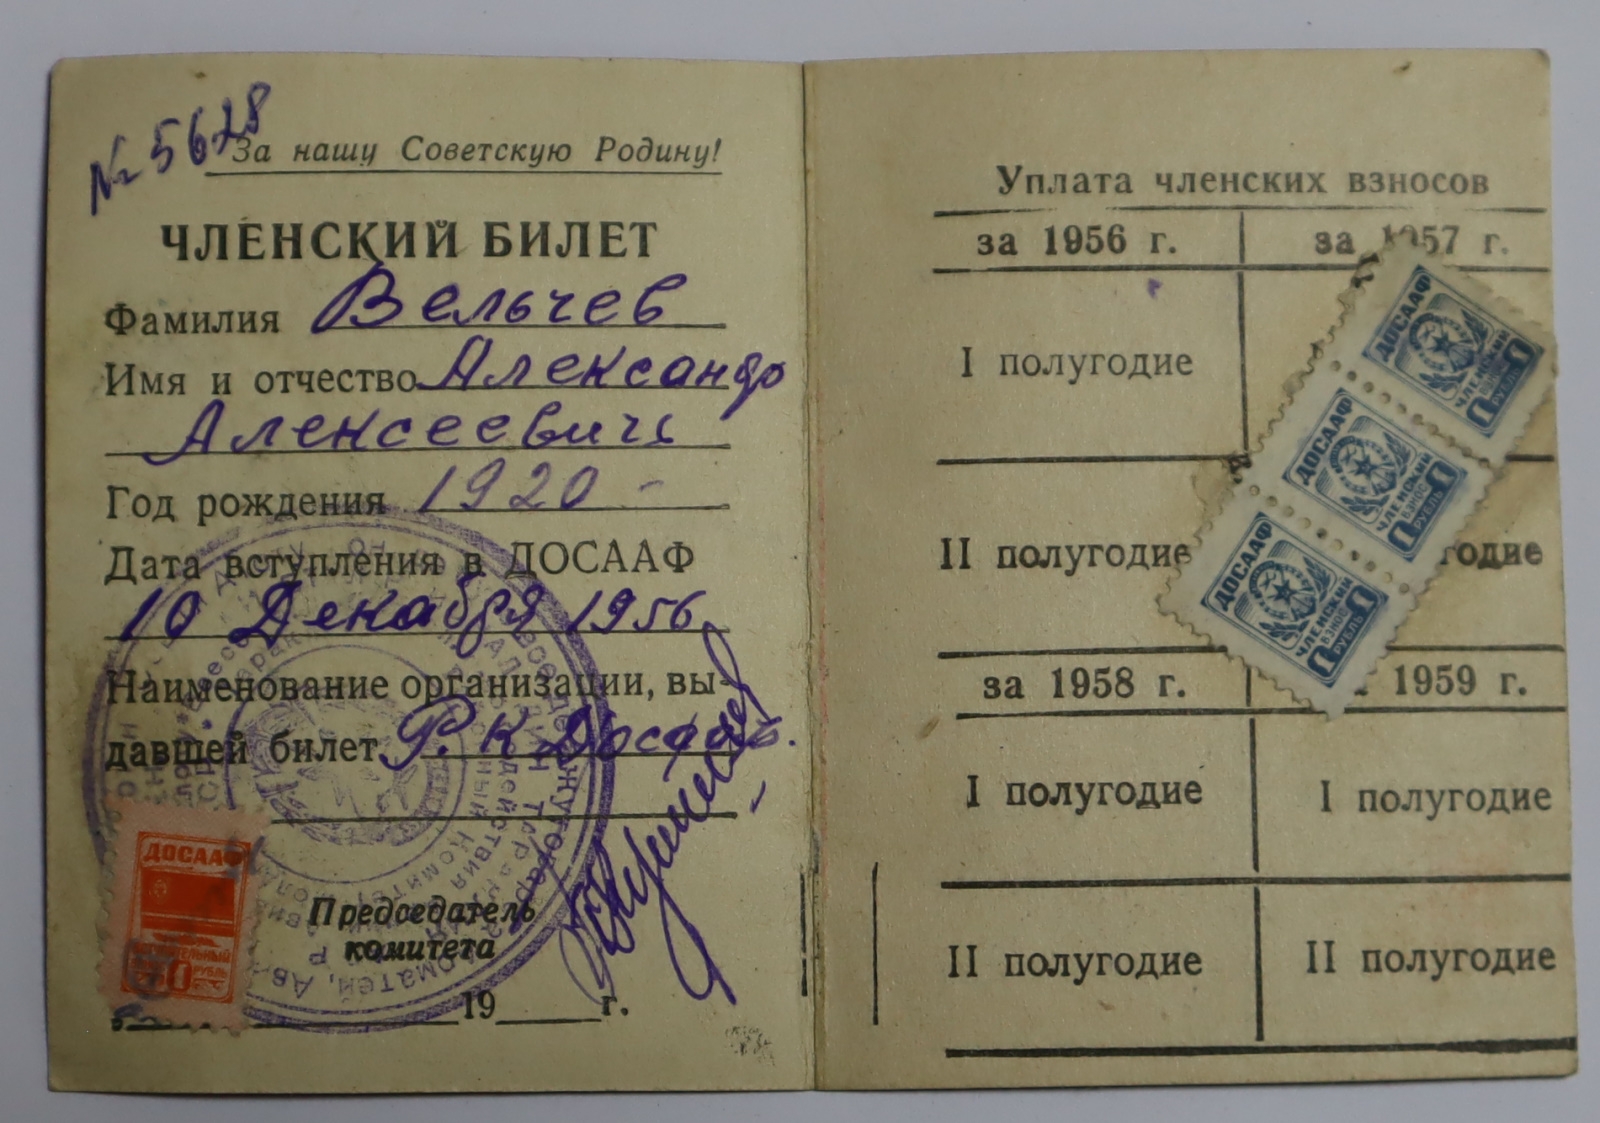 № 5628
За нашу Советскую Родину!
ЧЛЕНСКИЙ БИЛЕТ
Фамилия Вельчев
Имя и отчество Александр
Алексеевич
Год рождения 1920 -
Дата вступления в ДОСААФ
10 Декабря 1956
Наименование организации, вы-
давшей билет Р.К Досааф.
ДОСААФ
1 РУБЛЬ
Председатель
комитета
19 г.
Уплата членских взносов
за 1956 г. за 1957 г.
I полугодие
II полугодие годие
ДОСААФ
ЧЛЕНСКИЙ
ВЗНОС
1 РУБЛЬ
ДОСААФ
ЧЛЕНСКИЙ
ВЗНОС
1 РУБЛЬ
ДОСААФ
ЧЛЕНСКИЙ
ВЗНОС
1 РУБЛЬ
за 1958 г. 1959 г.
I полугодие I полугодие
II полугодие II полугодие